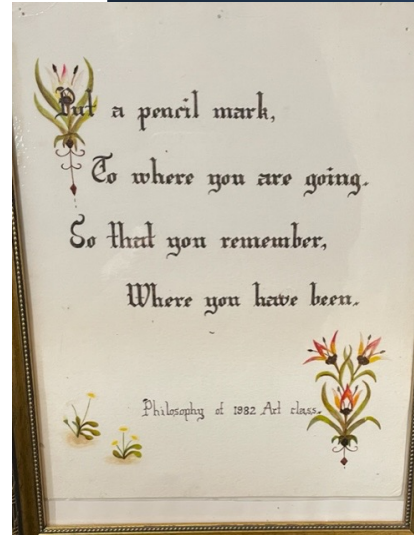 Put a pencil mark,
To where you are going.
So that you remember,
Where you have been.
Philosophy of 1982 Art class.